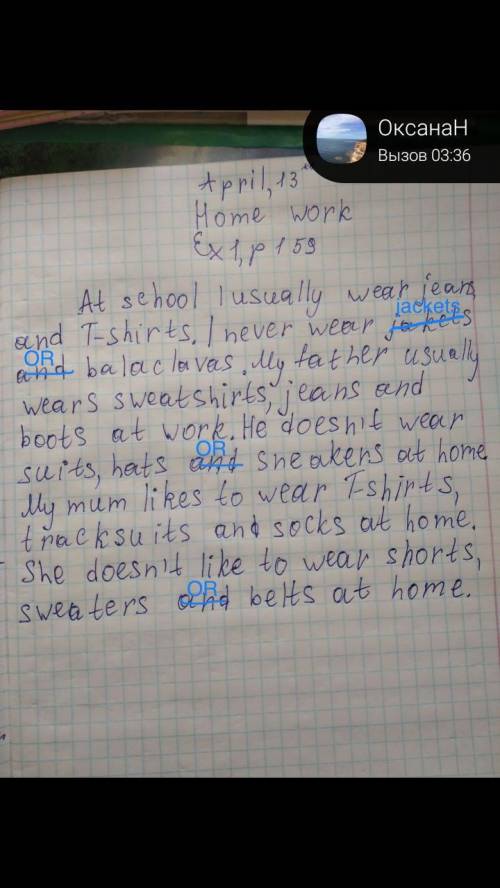 ОксанаН
Вызов 03:36
April, 13
Home work
Ex 1, p 159
At school I usually wear jeans
jackets
and T-shirts. I never wear jakets
OR
and balaclavas. My father usually
wears sweatshirts, jeans and
boots at work. He doesn't wear
OR
suits, hats and sneakers at home
My mum likes to wear T-shirts,
tracksuits and socks at home.
She doesn't like to wear shorts,
OR
sweaters and belts at home.